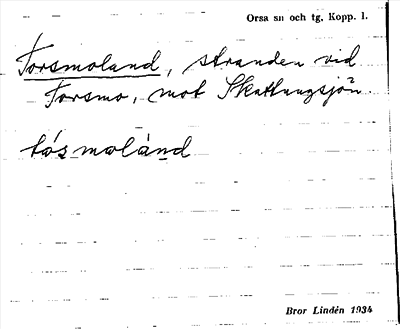 Orsa sn och tg, Kopp. l.
Torsmoland, stranden vid
Torsmo, mot Skattungsjön.
tásmolànd
Bror Lindén 1934